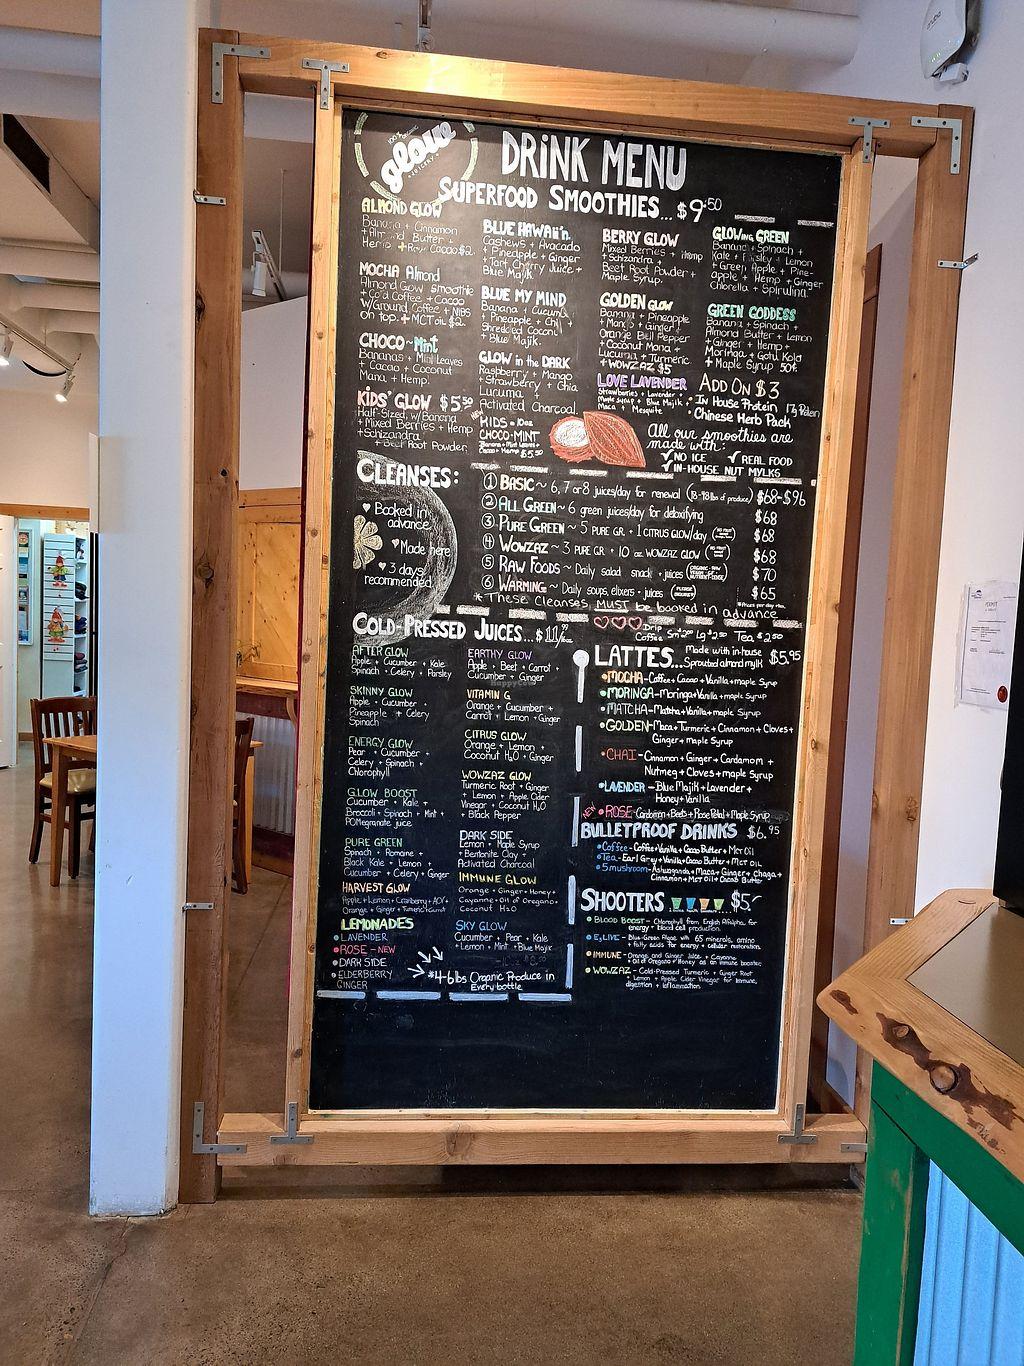 100% ORGANIC
glow
JUICERY
DRINK MENU
SUPERFOOD SMOOTHIES... $9.50
ALMOND GLOW
Banana + Cinnamon
+ Almond Butter +
Hemp + Raw Cacao $2
MOCHA Almond
Almond Glow smoothie
+ Cold Coffee + Cacao
w/Ground Coffee + NIBS
on top. + MCT oil $2
CHOCO-Mint
Bananas + Mint Leaves
+ Cacao + Coconut
Mana + Hemp
KIDS' GLOW $5.50
Half-Sized, w/Banana
+ Mixed Berries + Hemp
+ Schizandra
+ Beet Root Powder
BLUE HAWAii'n
Cashews + Avocado
+ Pineapple + Ginger
+ Tart Cherry Juice +
Blue Majik
BLUE MY MIND
Banana + Cucumber
+ Pineapple +
Shredded Coconut
+ Blue Majik
GLOW in the DARK
Raspberry + Mango
+ Strawberry + Chia
Lucuma +
Activated Charcoal
NEW
KIDS - 10oz
CHOCO-MINT
Banana + Mint Leaves +
$5.50
BERRY GLOW
Mixed Berries + Hemp
+ Schizandra +
Beet Root Powder +
Maple Syrup
GOLDEN GLOW
Banana + Pineapple
+ Mango + Ginger +
Orange Bell Pepper
+ Coconut Mana +
Lucuma + Turmeric
+ WOWZAZ $5
LOVE LAVENDER
Strawberries + Lavender +
Maple syrup + Blue Majik +
Maca + Mesquite
GLOWING GREEN
Banana + Spinach +
Kale + Parsley + Lemon
+ Green Apple + Pine-
apple + Hemp + Ginger
Chlorella + Spirulina
GREEN GODDESS
Banana + Spinach +
Almond Butter + Lemon
+ Ginger + Hemp +
Moringa + Gotu Kola
+ Maple Syrup 50¢
ADD ON $3
• In House Protein 17g Protein
• Chinese Herb Pack
All our smoothies are
made with:
✓ NO ICE ✓ REAL FOOD
✓ IN-HOUSE NUT MYLKS
CLEANSES:
♥ Booked in
advance
♥ Made here
♥ 3 days
recommended
① BASIC ~ 6, 7 or 8 juices/day for renewal (18-48lbs of produce) $68-$96
② ALL GREEN ~ 6 green juices/day for detoxifying $68
③ PURE GREEN ~ 5 PURE GR. + 1 CITRUS GLOW/day $68
④ WOWZAZ ~ 3 PURE GR. + 10 oz WOWZAZ GLOW $68
⑤ RAW FOODS ~ Daily salad snack + juices $70
⑥ WARMING ~ Daily soups, elixirs + juices $65
*Prices per day
* These Cleanses MUST be booked in advance
COLD-PRESSED JUICES... $11
AFTER GLOW
Apple + Cucumber + Kale
Spinach + Celery + Parsley
SKINNY GLOW
Apple + Cucumber +
Pineapple + Celery
Spinach
ENERGY GLOW
Pear + Cucumber +
Celery + Spinach +
Chlorophyll
GLOW BOOST
Cucumber + Kale +
Broccoli + Spinach + Mint +
POMegranate juice
PURE GREEN
Spinach + Romaine +
Black Kale + Lemon +
Cucumber + Celery + Ginger
HARVEST GLOW
Apple + Lemon + Cranberry + ACV +
Orange + Ginger + Turmeric
LEMONADES
• LAVENDER
• ROSE - NEW
• DARK SIDE
• ELDERBERRY
GINGER
EARTHY GLOW
Apple + Beet + Carrot +
Cucumber + Ginger
VITAMIN G
Orange + Cucumber +
Carrot + Lemon + Ginger
CITRUS GLOW
Orange + Lemon +
Coconut H₂O + Ginger
WOWZAZ GLOW
Turmeric Root + Ginger
+ Lemon + Apple Cider
Vinegar + Coconut H₂O
+ Black Pepper
DARK SIDE
Lemon + Maple Syrup
+ Bentonite Clay +
Activated Charcoal
IMMUNE GLOW
Orange + Ginger + Honey +
Cayenne + Oil of Oregano +
Coconut H₂O
SKY GLOW
Cucumber + Pear + Kale
+ Lemon + Mint + Blue Majik
* 4-6 lbs Organic Produce in
Every bottle
Drip
Coffee Sm $2.00 Lg $2.50 Tea $2.50
LATTES... Made with in-house
Sprouted almond mylk $5.95
• MOCHA - Coffee + Cacao + Vanilla + maple Syrup
• MORINGA - Moringa + Vanilla + maple syrup
• MATCHA - Matcha + Vanilla + maple Syrup
• GOLDEN - Maca + Turmeric + Cinnamon + Cloves +
Ginger + maple Syrup
• CHAI - Cinnamon + Ginger + Cardamom +
Nutmeg + Cloves + maple Syrup
• LAVENDER - Blue Majik + Lavender +
Honey + Vanilla
NEW
• ROSE - Cardamon + Beets + Rose Petal + Maple Syrup
BULLETPROOF DRINKS $6.95
• Coffee - Coffee + Vanilla + Cacao Butter + MCT Oil
• Tea - Earl Grey + Vanilla + Cacao Butter + MCT OIL
• 5 mushroom - Ashwaganda + Maca + Ginger + Chaga +
Cinnamon + MCT Oil + Cacao Butter
SHOOTERS $5
• BLOOD BOOST - Chlorophyll from English Alfalpha, for
energy + blood cell production.
• E₃LIVE - Blue-Green Algae with 65 minerals, amino
+ fatty acids for energy + cellular restoration
• IMMUNE - Orange and Ginger Juice + Cayenne
+ Oil of Oregano + Honey as an immune booster
• WOWZAZ - Cold-Pressed Turmeric + Ginger Root
+ Lemon + Apple Cider Vinegar for Immune,
digestion + inflammation.